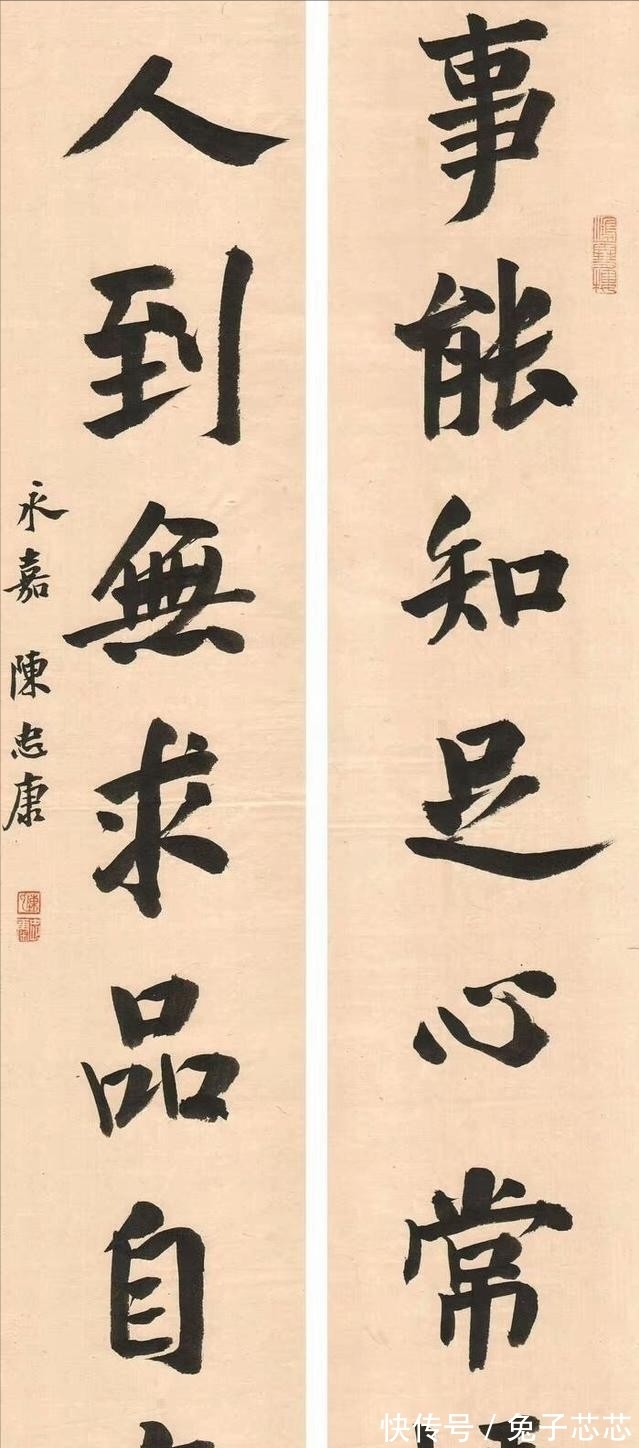 事能知足心常
人到無求品自
永嘉 陳忠康
快传号 / 兔子芯芯